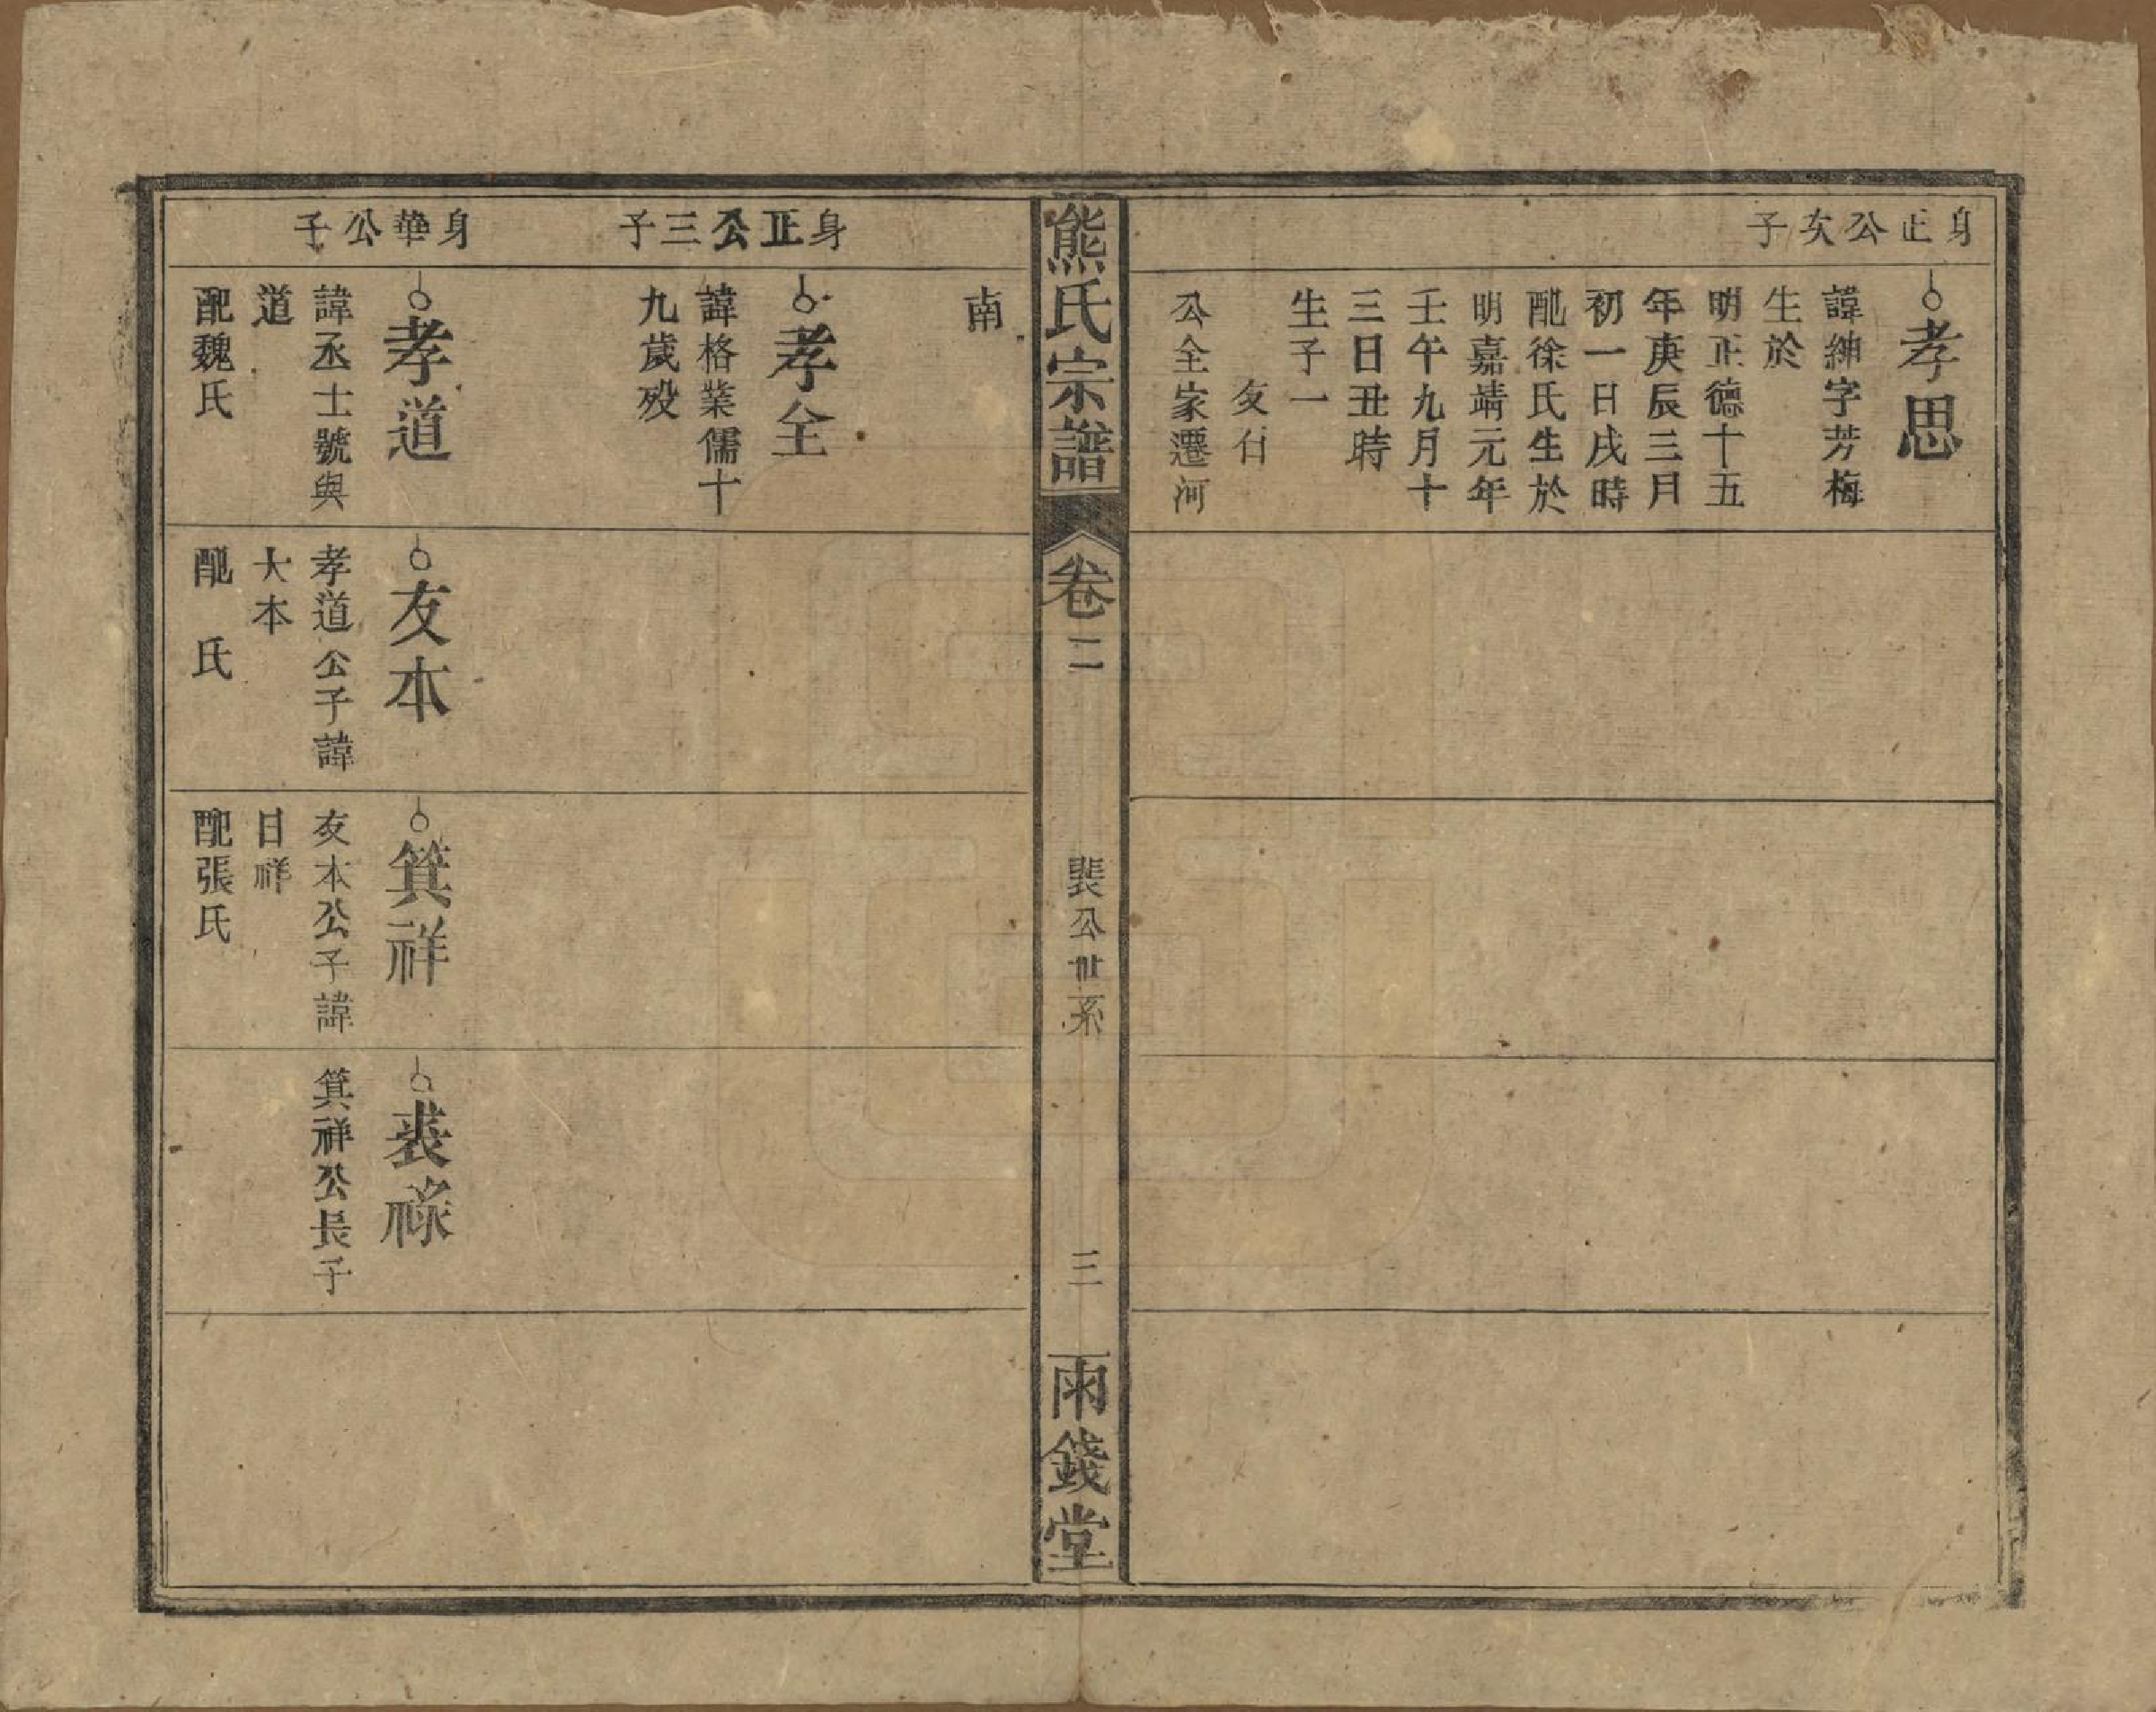 身正公次子
孝思
諱紳字芳梅
生於
明正德十五
年庚辰三月
初一日戌時
配徐氏生於
明嘉靖元年
壬午九月十
三日丑時
生子一
友石
公全家遷河
熊氏宗譜
卷二
裴公世系
三
雨錢堂
南
身正公三子
孝全
諱格業儒十
九歲歿
身華公子
孝道
諱丞士號與
道
配魏氏
友本
孝道公子諱
大本
配　氏
箕祥
友本公子諱
日祥
配張氏
裘祿
箕祥公長子